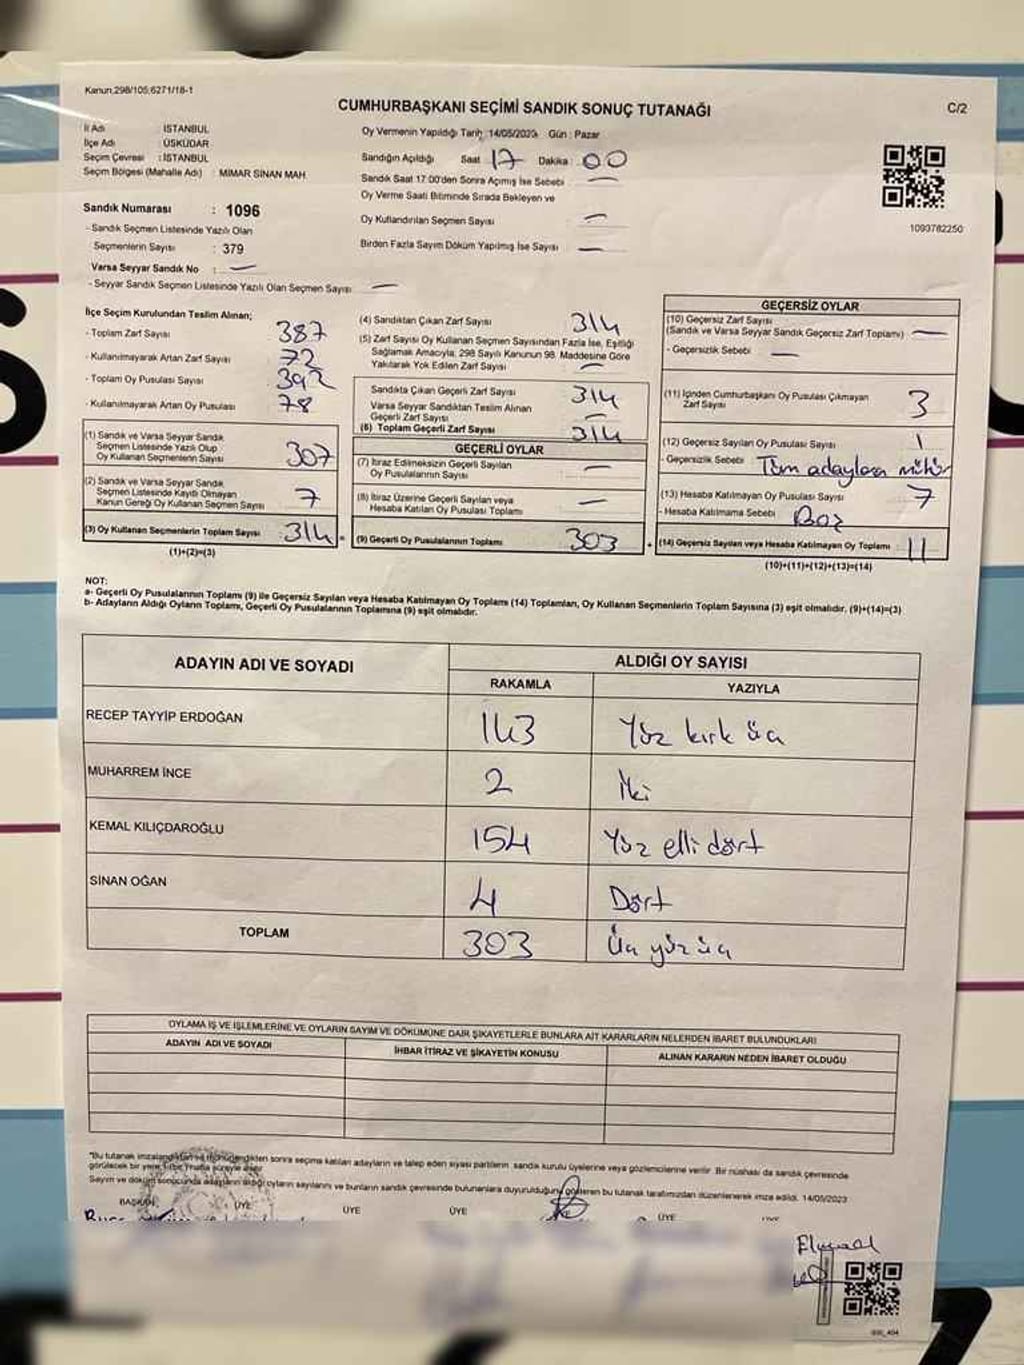 Kanun,298/105;6271/18-1
CUMHURBAŞKANI SEÇİMİ SANDIK SONUÇ TUTANAĞI
C/2
İl Adı : İSTANBUL
İlçe Adı : ÜSKÜDAR
Seçim Çevresi : İSTANBUL
Seçim Bölgesi (Mahalle Adı) : MİMAR SİNAN MAH.
Sandık Numarası : 1096
- Sandık Seçmen Listesinde Yazılı Olan
Seçmenlerin Sayısı : 379
Varsa Seyyar Sandık No : —
- Seyyar Sandık Seçmen Listesinde Yazılı Olan Seçmen Sayısı —
Oy Vermenin Yapıldığı Tarih: 14/05/2023 Gün : Pazar
Sandığın Açıldığı Saat 17 Dakika : 00
Sandık Saat 17:00'den Sonra Açımış İse Sebebi —
Oy Verme Saati Bitiminde Sırada Bekleyen ve
Oy Kullandırılan Seçmen Sayısı —
Birden Fazla Sayım Döküm Yapılmış İse Sayısı —
1093782250
İlçe Seçim Kurulundan Teslim Alınan;
- Toplam Zarf Sayısı 387
- Kullanılmayarak Artan Zarf Sayısı : 72
- Toplam Oy Pusulası Sayısı 392
- Kullanılmayarak Artan Oy Pusulası : 78
(1) Sandık ve Varsa Seyyar Sandık
Seçmen Listesinde Yazılı Olup
Oy Kullanan Seçmenlerin Sayısı 307
(2) Sandık ve Varsa Seyyar Sandık
Seçmen Listesinde Kayıtlı Olmayan
Kanun Gereği Oy Kullanan Seçmen Sayısı 7
(3) Oy Kullanan Seçmenlerin Toplam Sayısı 314 =
(1)+(2)=(3)
(4) Sandıktan Çıkan Zarf Sayısı 314
(5) Zarf Sayısı Oy Kullanan Seçmen Sayısından Fazla İse, Eşitliği
Sağlamak Amacıyla, 298 Sayılı Kanunun 98. Maddesine Göre
Yakılarak Yok Edilen Zarf Sayısı —
Sandıkta Çıkan Geçerli Zarf Sayısı 314
Varsa Seyyar Sandıktan Teslim Alınan
Geçerli Zarf Sayısı —
(6) Toplam Geçerli Zarf Sayısı 314
GEÇERLİ OYLAR
(7) İtiraz Edilmeksizin Geçerli Sayılan
Oy Pusulasının Sayısı —
(8) İtiraz Üzerine Geçerli Sayılan veya
Hesaba Katılan Oy Pusulası Toplamı —
(9) Geçerli Oy Pusulalarının Toplamı 303 +
GEÇERSİZ OYLAR
(10) Geçersiz Zarf Sayısı
(Sandık ve Varsa Seyyar Sandık Geçersiz Zarf Toplamı) —
- Geçersizlik Sebebi : —
(11) İçinden Cumhurbaşkanı Oy Pusulası Çıkmayan
Zarf Sayısı 3
(12) Geçersiz Sayılan Oy Pusulası Sayısı 1
- Geçersizlik Sebebi Tüm adaylara mühür
(13) Hesaba Katılmayan Oy Pusulası Sayısı 7
- Hesaba Katılmama Sebebi Boz
(14) Geçersiz Sayılan veya Hesaba Katılmayan Oy Toplamı : 11
(10)+(11)+(12)+(13)=(14)
NOT:
a- Geçerli Oy Pusulalarının Toplamı (9) ile Geçersiz Sayılan veya Hesaba Katılmayan Oy Toplamı (14) Toplamları, Oy Kullanan Seçmenlerin Toplam Sayısına (3) eşit olmalıdır. (9)+(14)=(3)
b- Adayların Aldığı Oyların Toplamı, Geçerli Oy Pusulalarının Toplamına (9) eşit olmalıdır.
ADAYIN ADI VE SOYADI
ALDIĞI OY SAYISI
RAKAMLA YAZIYLA
RECEP TAYYİP ERDOĞAN 143 Yüz kırk üç
MUHARREM İNCE 2 İki
KEMAL KILIÇDAROĞLU 154 Yüz elli dört
SİNAN OĞAN 4 Dört
TOPLAM 303 Üç yüz üç
OYLAMA İŞ VE İŞLEMLERİNE VE OYLARIN SAYIM VE DÖKÜMÜNE DAİR ŞİKAYETLERLE BUNLARA AİT KARARLARIN NELERDEN İBARET BULUNDUKLARI
ADAYIN ADI VE SOYADI İHBAR İTİRAZ VE ŞİKAYETİN KONUSU ALINAN KARARIN NEDEN İBARET OLDUĞU
*Bu tutanak imzalandıktan ve mühürlendikten sonra seçime katılan adayların ve talep eden siyasi partilerin sandık kurulu üyelerine veya gözlemcilerine verilir. Bir nüshası da sandık çevresinde
görülecek bir yere, bir hafta süreyle asılır
Sayım ve döküm sonucunda adayların aldığı oyların sayılarını ve bunların sandık çevresinde bulunanlara duyurulduğunu gösteren bu tutanak tarafımızdan düzenlenerek imza edildi. 14/05/2023
BAŞKAN ÜYE ÜYE ÜYE ÜYE ÜYE